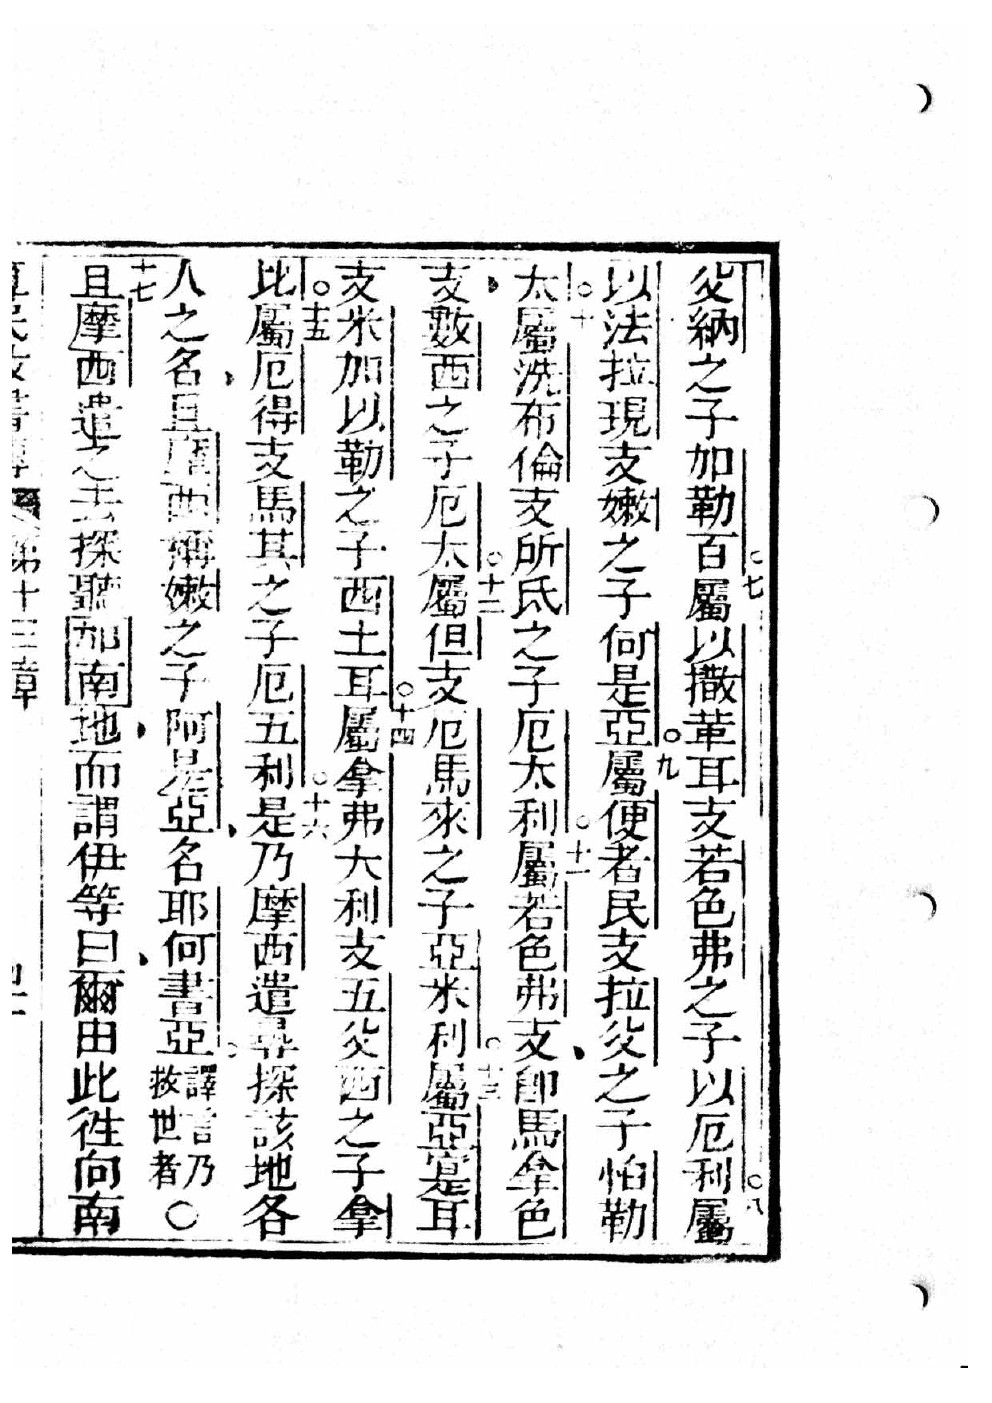 父納之子加勒百屬以撒革耳支若色弗之子以厄利屬
○七
○八
以法拉現支嫩之子何是亞屬便者民支拉父之子怕勒
○九
太屬洗布倫支所氐之子厄太利屬若色弗支卽馬拿色
○十
○十一
支數西之子厄太屬但支厄馬來之子亞米利屬亞寔耳
○十二
○十三
支米加以勒之子西土耳屬拿弗大利支五父西之子拿
○十四
比屬厄得支馬其之子厄五利是乃摩西遣尋探該地各
○十五
○十六
人之名且摩西稱嫩之子阿是亞名耶何書亞譯言乃救世者○
且摩西遣之去探聽加南地而謂伊等曰爾由此徃向南
十七
第十三章